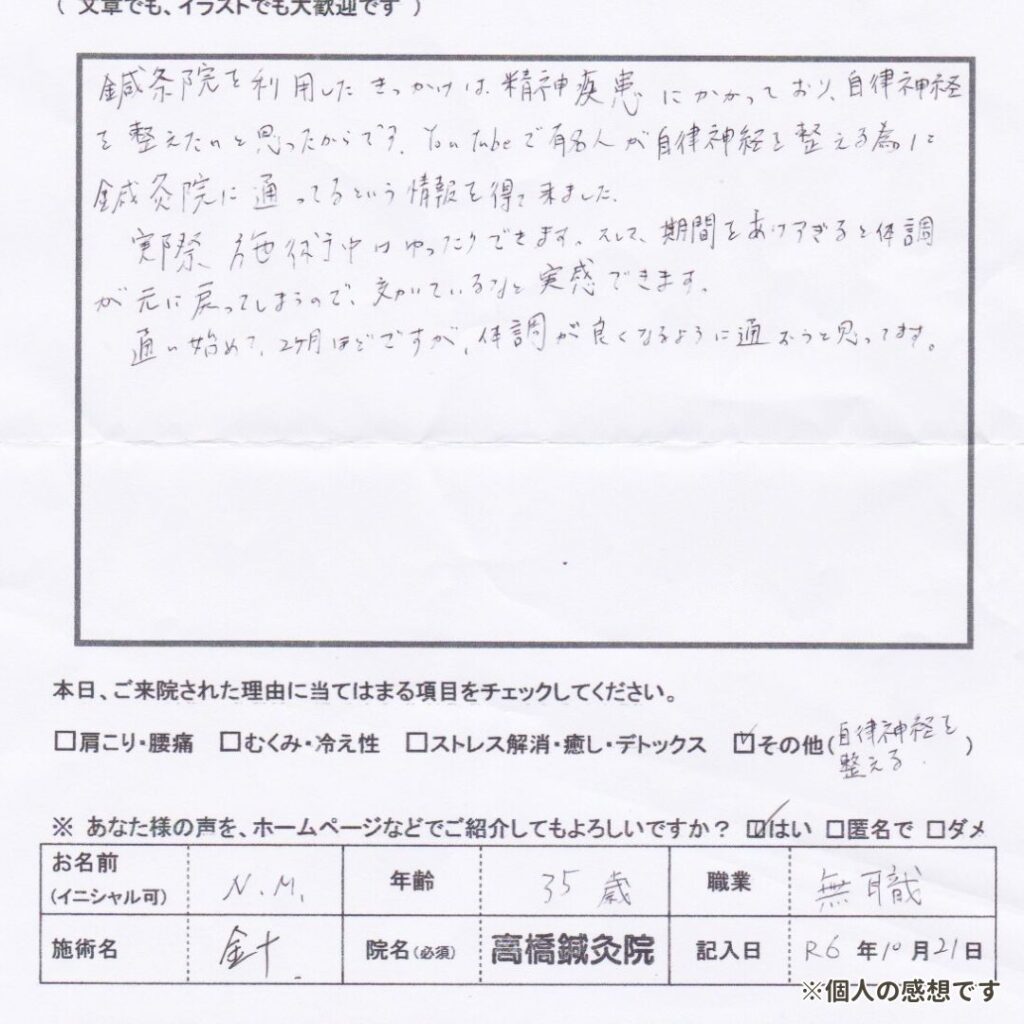 ( 文章でも、イラストでも大歓迎です )
鍼灸院を利用したきっかけは、精神疾患にかかっており、自律神経
を整えたいと思ったからです。YouTubeで有名人が自律神経を整える為に
鍼灸院に通ってるという情報を得て来ました。
実際施術中はゆったりできます。そして、期間をあけすぎると体調
が元に戻ってしまうので、効いているなと実感できます。
通い始めて、2ヶ月ほどですが、体調が良くなるように通おうと思ってます。
本日、ご来院された理由に当てはまる項目をチェックしてください。
□肩こり・腰痛 □むくみ・冷え性 □ストレス解消・癒し・デトックス ☑その他(自律神経を整える。)
※ あなた様の声を、ホームページなどでご紹介してもよろしいですか? ☑はい □匿名で □ダメ
お名前(イニシャル可) N.M. 年齢 35歳 職業 無職
施術名 針 院名(必須) 高橋鍼灸院 記入日 R6年10月21日
※個人の感想です